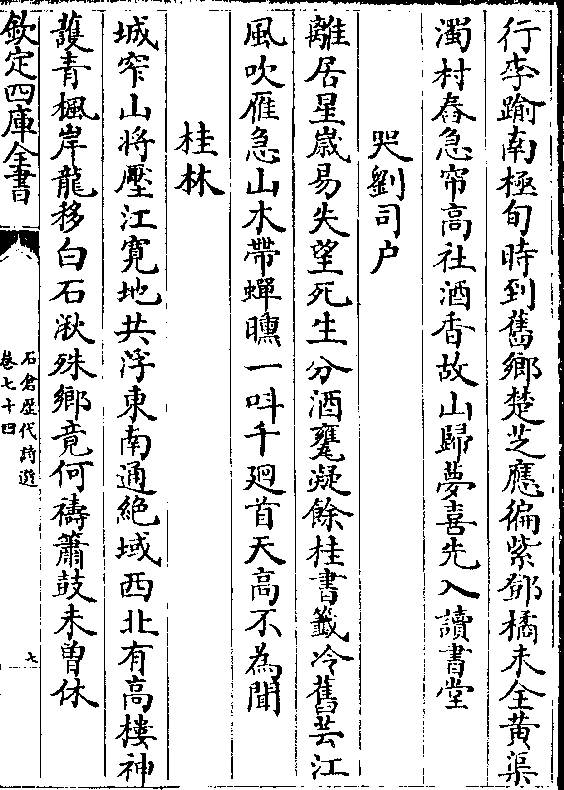 行李踰南極旬時到舊鄉楚芝應徧紫鄧橘未全黄渠
濁村舂急帘高社酒香故山歸夢喜先入讀書堂
哭劉司户
離居星歲易失望死生分酒甕凝餘桂書籖冷舊芸江
風吹雁急山木帶蟬曛一呌千廻首天高不為聞
桂林
城窄山将壓江寛地共浮東南通絶域西北有高樓神
護青楓岸龍移白石湫殊鄉竟何禱簫鼓未曽休
欽定四庫全書
石倉歴代詩選
卷七十四
七